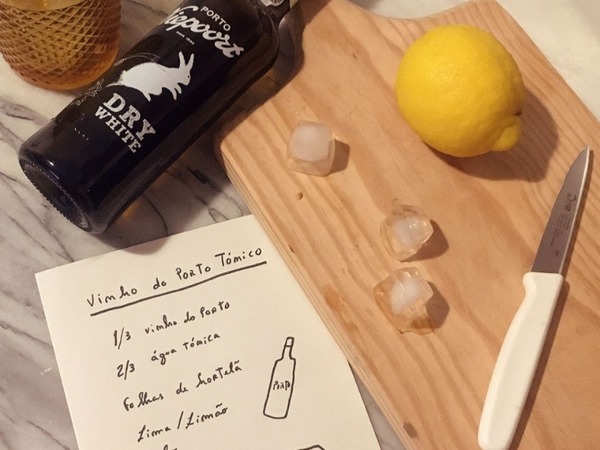 PORTO
Niepoort
DRY
WHITE
Vinho do Porto Tónico
1/3 vinho do Porto
2/3 água tónica
Folhas de hortelã
Lima / Limão
Porto